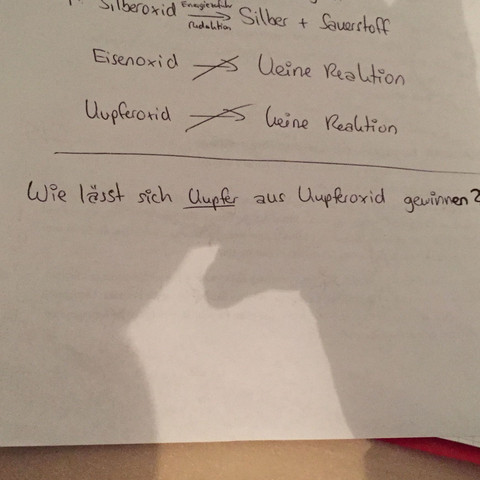 Silberoxid Energiezufuhr Reduktion Silber + Sauerstoff
Eisenoxid keine Reaktion
Kupferoxid keine Reaktion
Wie lässt sich Kupfer aus Kupferoxid gewinnen?